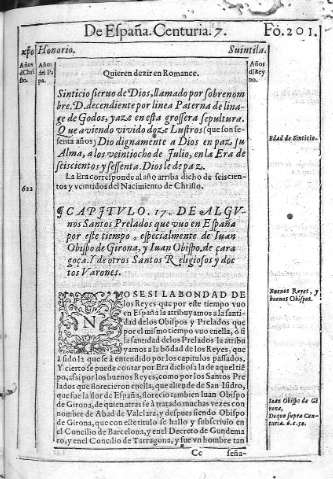 De España. Centuria. 7. Fo. 201.
xp̃o Honorio. Suintila.
Años d̃ Chri sto.
Años del Pa pa.
Años d̃l Rey no.
Quieren dezir en Romance.
Sinticio sieruo de Dios, llamado por sobrenom-
bre. D. decendiente por linea Paterna de lina-
ge de Godos, yaze en esta grossera sepultura.
Que aviendo vivido doze Lustros (que son se-
senta años) Dio dignamente a Dios en paz su
Alma, a los veintiocho de Julio, en la Era de
seiscientos y sesenta. Dios le de paz.
Edad de Sinticio.
La Era corresponde al año arriba dicho de seiscien-
tos y veintidos del Nacimiento de Christo.
622
¶ CAPITVLO. 17. DE ALGV-
nos Santos Prelados que vuo en España
por este tiempo, especialmente de Iuan
Obispo de Girona, y Iuan Obispo, de cara
goça. Y de otros Santos Religiosos y doc
tos Varones.
Buenos Reyes, y
buenos Obispos.
NO SE SI LA BONDAD DE
los Reyes que por este tiempo vuo
en España la atribuyamos a la santi
dad delos Obispos y Prelados que
por el mismo tiempo vuo enella, ô si
la santidad delos Prelados la atribu
yamos a la bõdad de los Reyes, que
ã sido la que se â entendido por los capitulos passados.
Y cierto se puede contar por Era dichosa la de aquel tiẽ
po, assi por los buenos Reyes, como por los Santos Pre
lados que florecieron enella, que allende de San Isidro,
que fue la flor de España, florecio tambien Iuan Obispo
de Girona, de quien atras se â tratado muchas vezes con
nombre de Abad de Valclara, y despues siendo Obispo
de Girona, que con este titulo se hallo y subscriuio en
el Concilio de Barcelona, y en el Decreto de Gundema
ro, y en el Concilio de Tarragona, y fue vn hombre tan
Iuan Obispo de Gi
rona,
De quo supra Cen-
turia. 6. c. 50.
Cc seña-